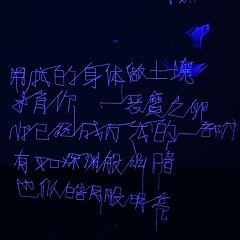 用我的身体做土壤
孕育你 一恶魔之卵
你已经成为我的一部分
有如深渊般幽暗
也似皓月般明亮